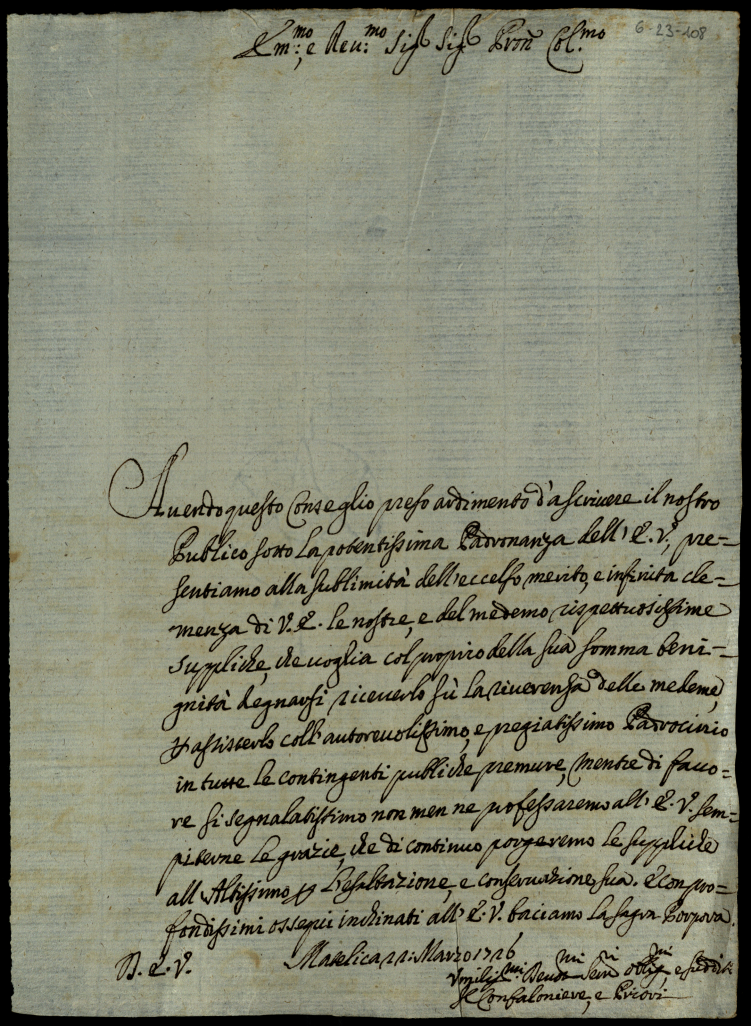 6-23-108
Em:mo e Reu:mo Sig Sig Pron Col.mo
Auendo questo Conseglio preso ardimento d'ascriuere il nostro
Publico sotto la potentissima Padronanza dell' E. V., pre=
sentiamo alla sublimità dell'eccelso merito, e infinita cle=
menza di V. E. le nostre, e del medemo rispettuosissime
suppliche, che uoglia col proprio della sua somma beni=
gnità degnarsi riceuerlo sù la riuerenza delle medeme,
p assisterlo coll'autoreuolissimo, e pregiatissimo Padrocinio
in tutte le contingenti publiche premure, mentre di fauo=
re si segnalatissimo non men ne professaremo all' E. V. sem=
piterne le grazie, che di continuo porgeremo le suppliche
all'Altissimo p l'esaltazione, e conseruazione sua. E con pro=
fondissimi ossequi inchinati all' E. V. baciamo la sagra Porpora.
D. E. V. Matelica 22: Marzo 1726
Vmiliss:mi Deuot:mi Seru:ri oblig:mi, e sudditi
Il Confaloniere, e Priori